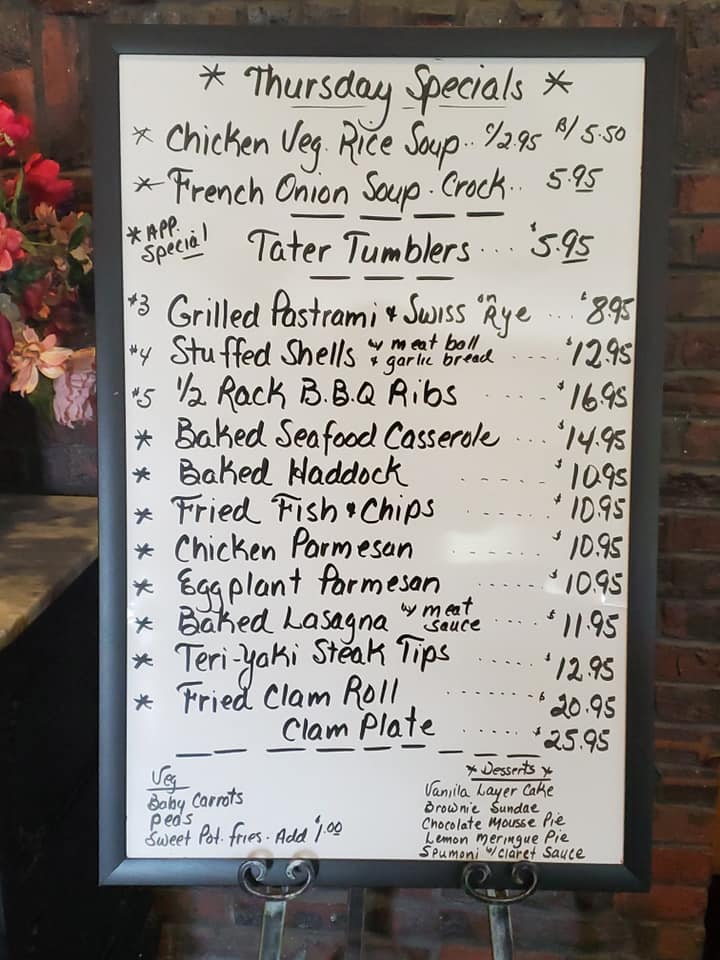 * Thursday Specials *
* Chicken Veg. Rice Soup.. C/2.95 B/5.50
* French Onion Soup. Crock.. 5.95
* APP. Special Tater Tumblers ... $5.95
#3 Grilled Pastrami & Swiss "n" Rye ... $8.95
#4 Stuffed Shells w/ meat ball & garlic bread .... $12.95
#5 1/2 Rack B.B.Q Ribs .... $16.95
* Baked Seafood Casserole ... $14.95
* Baked Haddock ..... $10.95
* Fried Fish & Chips ..... $10.95
* Chicken Parmesan ..... $10.95
* Eggplant Parmesan ..... $10.95
* Baked Lasagna w/ meat sauce .... $11.95
* Teri-yaki Steak Tips ..... $12.95
* Fried Clam Roll ....... $20.95
Clam Plate ..... $25.95
Veg
Baby Carrots
peas
Sweet Pot. fries. Add $1.00
* Desserts *
Vanilla Layer Cake
Brownie Sundae
Chocolate Mousse Pie
Lemon Meringue Pie
Spumoni w/ Claret Sauce